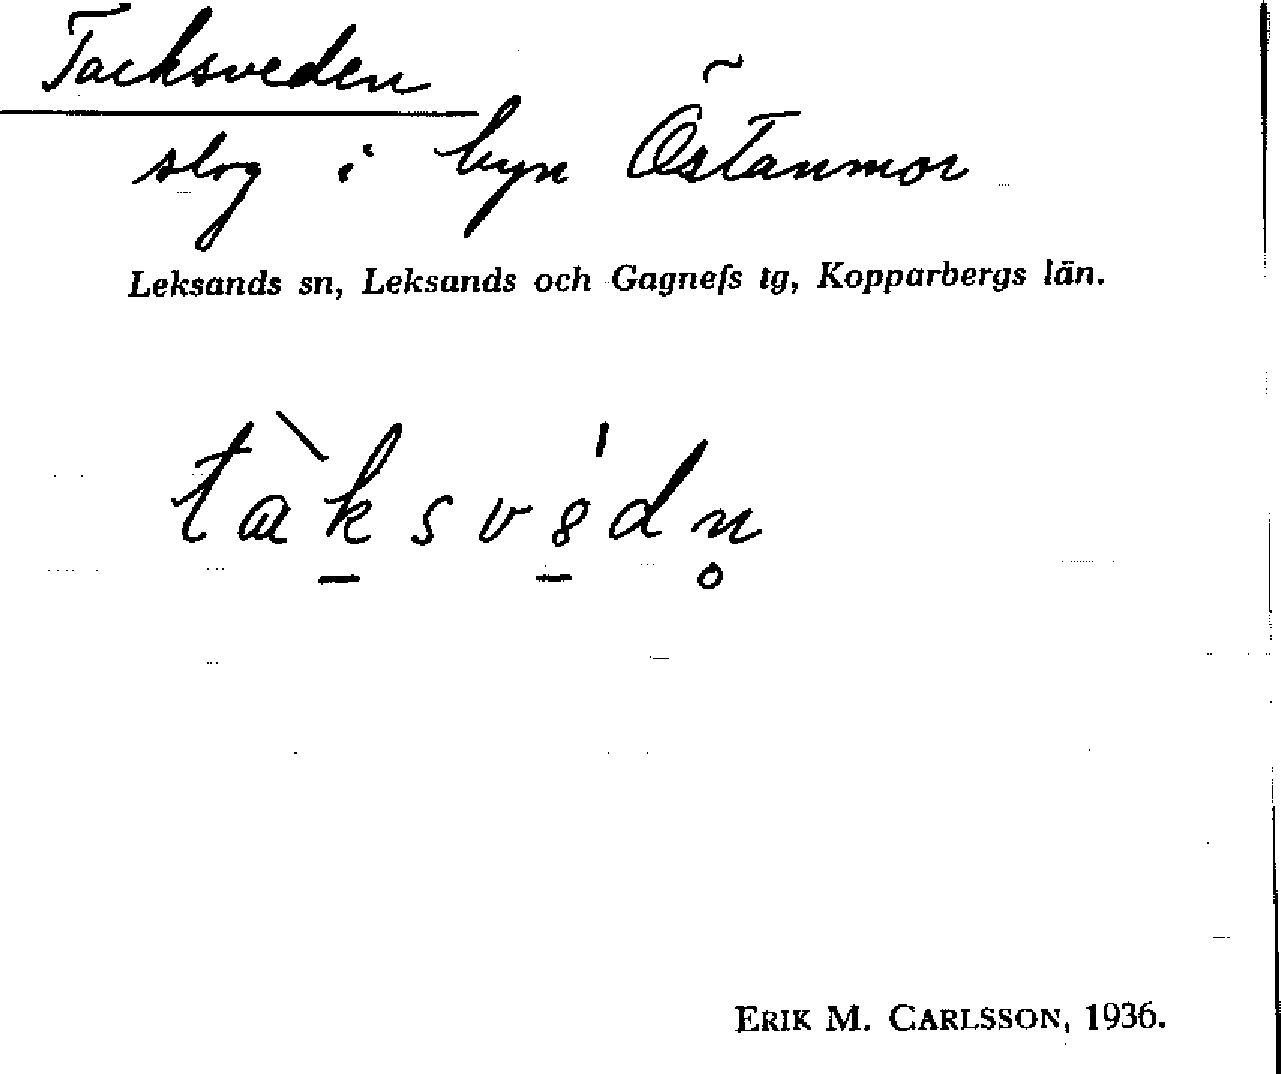 Tacksveden
slog i byn Östanmor
Leksands sn, Leksands och Gagnefs tg, Kopparbergs län.
tàk̠svè̠dn̥
ERIK M. CARLSSON, 1936.